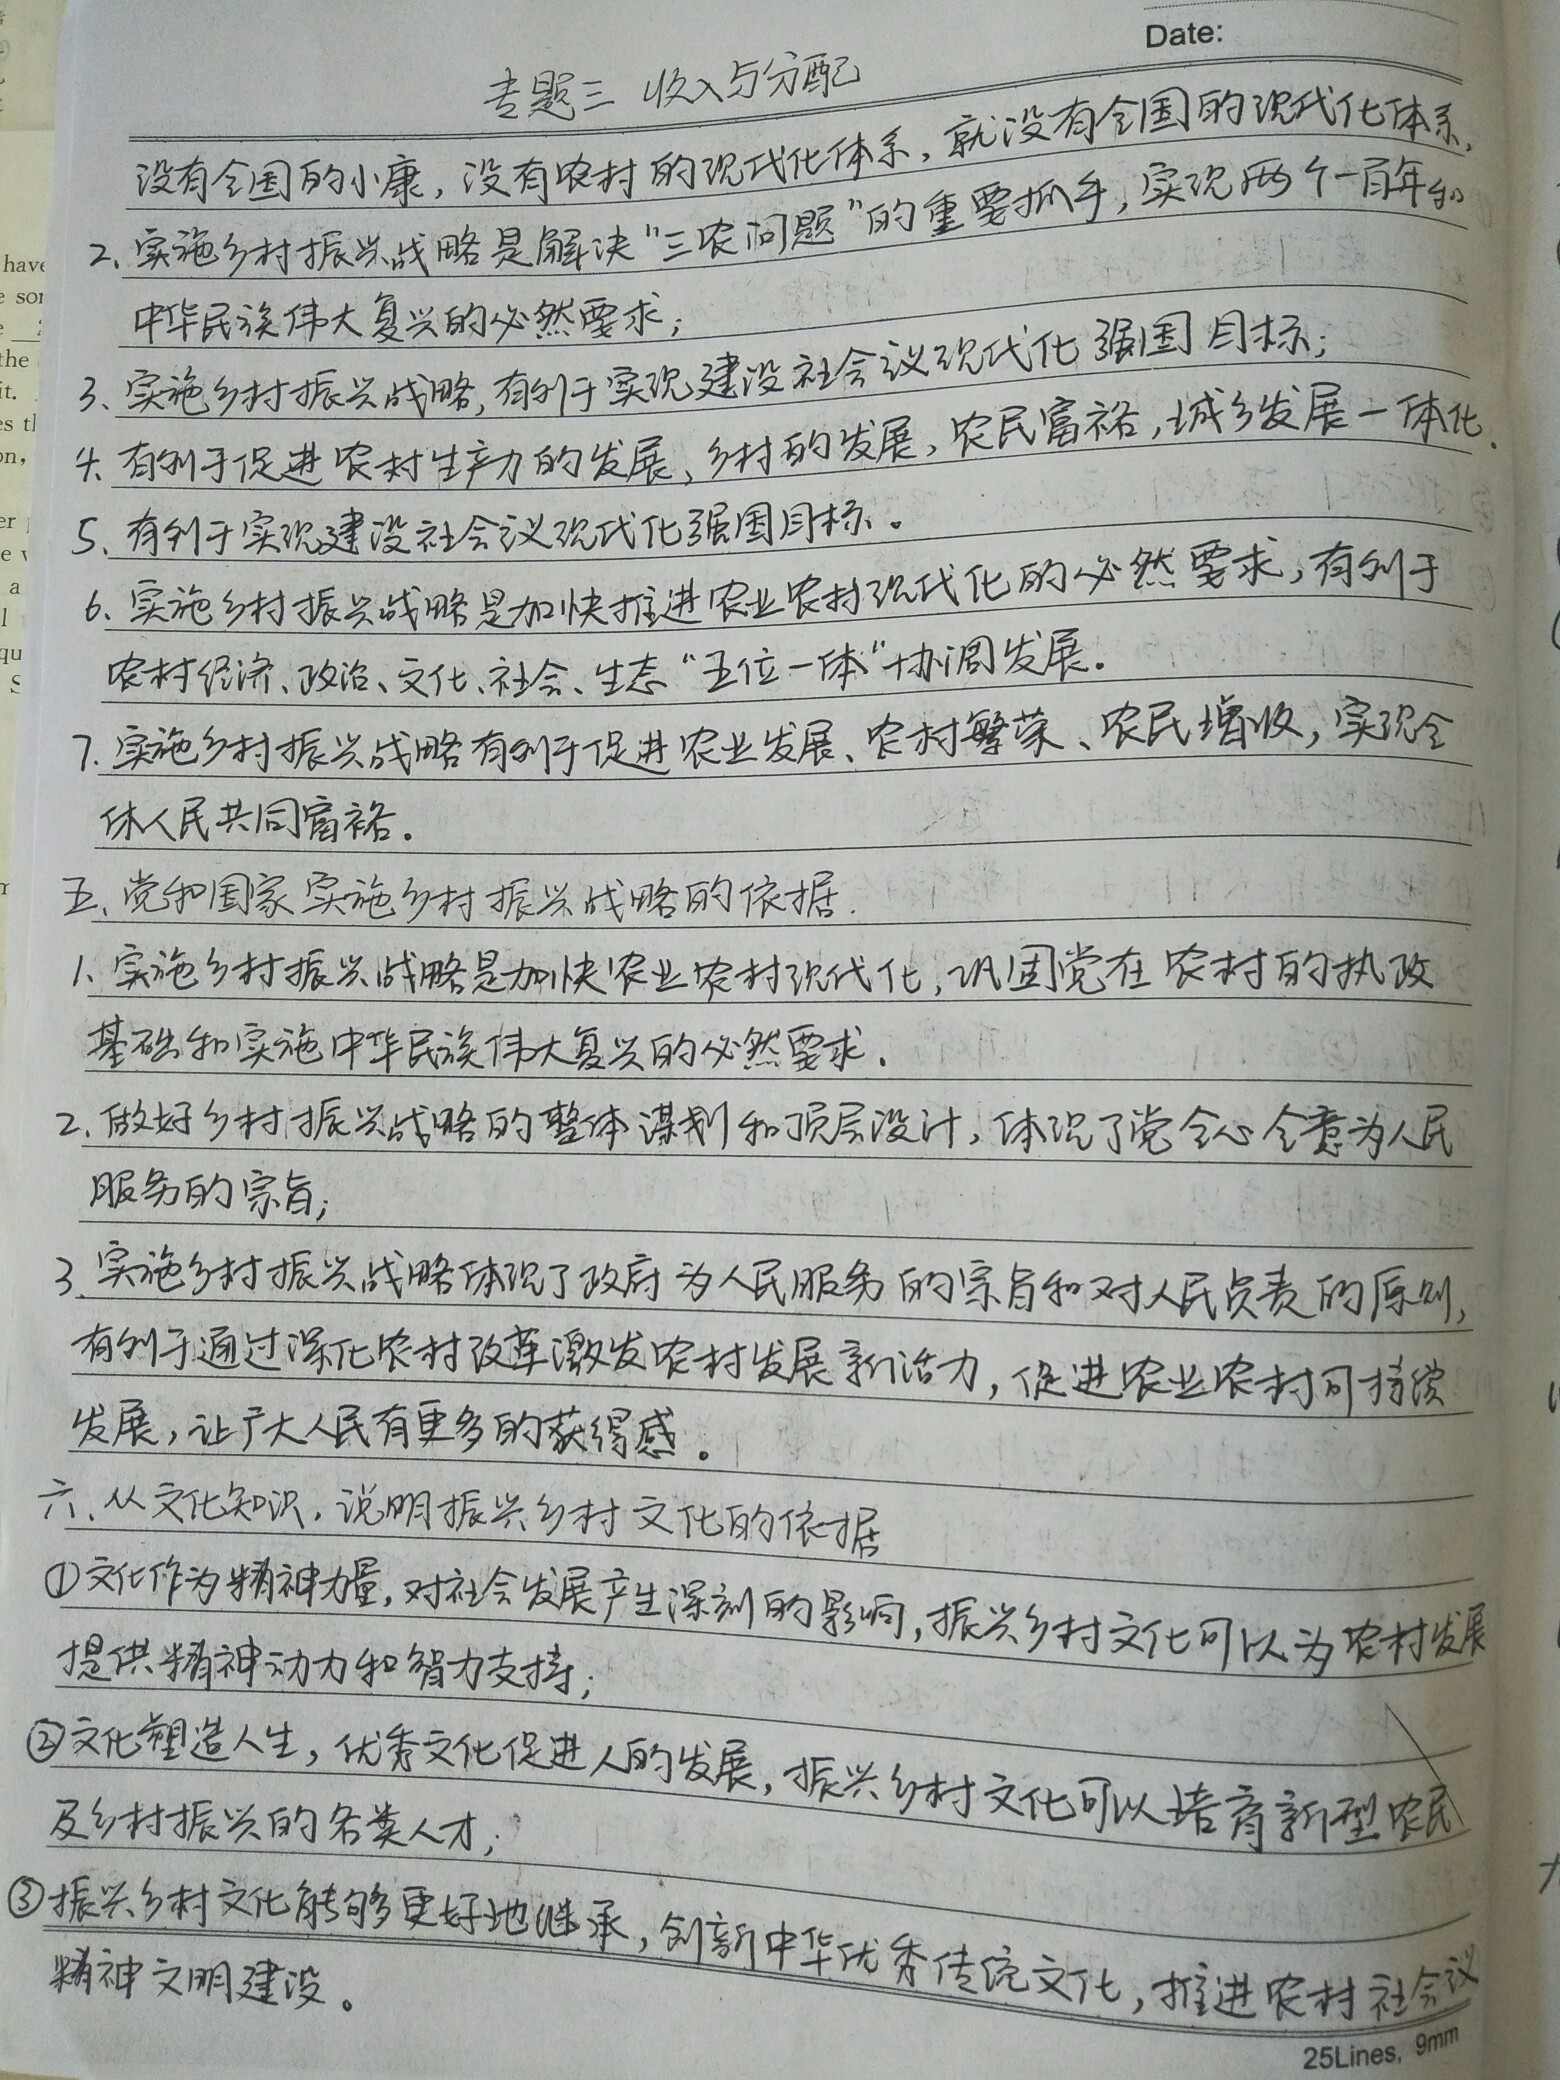 Date:
专题三 收入与分配
没有全国的小康，没有农村的现代化体系，就没有全国的现代化体系，
2、实施乡村振兴战略是解决“三农问题”的重要抓手，实现两个一百年和
中华民族伟大复兴的必然要求；
3、实施乡村振兴战略，有利于实现建设社会议现代化强国目标；
4、有利于促进农村生产力的发展、乡村的发展，农民富裕，城乡发展一体化.
5、有利于实现建设社会议现代化强国目标。
6、实施乡村振兴战略是加快推进农业农村现代化的必然要求，有利于
农村经济、政治、文化、社会、生态“五位一体”协调发展.
7、实施乡村振兴战略有利于促进农业发展、农村繁荣、农民增收，实现全
体人民共同富裕.
五、党和国家实施乡村振兴战略的依据.
1、实施乡村振兴战略是加快农业农村现代化，巩固党在农村的执政
基础和实施中华民族伟大复兴的必然要求.
2、做好乡村振兴战略的整体谋划和顶层设计，体现了党全心全意为人民
服务的宗旨；
3、实施乡村振兴战略体现了政府为人民服务的宗旨和对人民负责的原则，
有利于通过深化农村改革激发农村发展新活力，促进农业农村可持续
发展，让广大人民有更多的获得感。
六、从文化知识，说明振兴乡村文化的依据
①文化作为精神力量，对社会发展产生深刻的影响，振兴乡村文化可以为农村发展
提供精神动力和智力支持；
②文化塑造人生，优秀文化促进人的发展，振兴乡村文化可以培育新型农民
及乡村振兴的各类人才；
③振兴乡村文化能够更好地继承，创新中华优秀传统文化，推进农村社会议
精神文明建设。
25Lines, 9mm